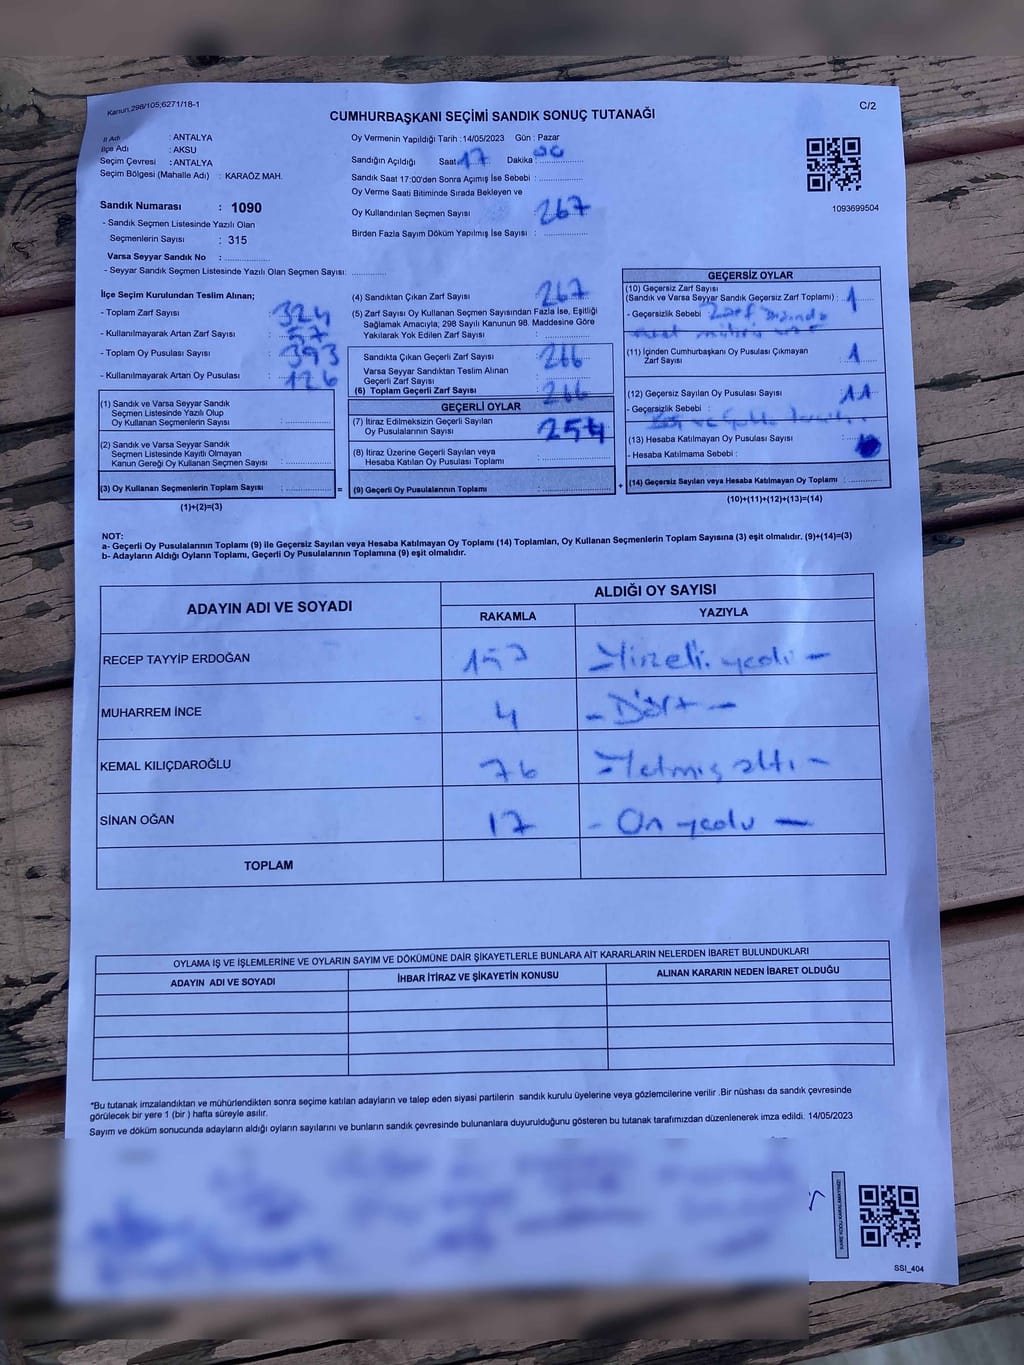 Kanun,298/105;6271/18-1
C/2
CUMHURBAŞKANI SEÇİMİ SANDIK SONUÇ TUTANAĞI
İl Adı : ANTALYA
İlçe Adı : AKSU
Seçim Çevresi : ANTALYA
Seçim Bölgesi (Mahalle Adı) : KARAÖZ MAH.
Oy Vermenin Yapıldığı Tarih : 14/05/2023 Gün : Pazar
Sandığın Açıldığı Saat 17 Dakika : 00
Sandık Saat 17:00'den Sonra Açımış İse Sebebi :
Oy Verme Saati Bitiminde Sırada Bekleyen ve
Oy Kullandırılan Seçmen Sayısı 267
Birden Fazla Sayım Döküm Yapılmış İse Sayısı :
1093699504
Sandık Numarası : 1090
- Sandık Seçmen Listesinde Yazılı Olan
Seçmenlerin Sayısı : 315
Varsa Seyyar Sandık No :
- Seyyar Sandık Seçmen Listesinde Yazılı Olan Seçmen Sayısı:
İlçe Seçim Kurulundan Teslim Alınan;
- Toplam Zarf Sayısı : 324
- Kullanılmayarak Artan Zarf Sayısı : 57
- Toplam Oy Pusulası Sayısı : 393
- Kullanılmayarak Artan Oy Pusulası : 126
(1) Sandık ve Varsa Seyyar Sandık
Seçmen Listesinde Yazılı Olup
Oy Kullanan Seçmenlerin Sayısı :
(2) Sandık ve Varsa Seyyar Sandık
Seçmen Listesinde Kayıtlı Olmayan
Kanun Gereği Oy Kullanan Seçmen Sayısı :
(3) Oy Kullanan Seçmenlerin Toplam Sayısı :
(1)+(2)=(3)
=
(4) Sandıktan Çıkan Zarf Sayısı : 267
(5) Zarf Sayısı Oy Kullanan Seçmen Sayısından Fazla İse, Eşitliği
Sağlamak Amacıyla; 298 Sayılı Kanunun 98. Maddesine Göre
Yakılarak Yok Edilen Zarf Sayısı :
Sandıkta Çıkan Geçerli Zarf Sayısı : 266
Varsa Seyyar Sandıktan Teslim Alınan
Geçerli Zarf Sayısı :
(6) Toplam Geçerli Zarf Sayısı : 266
GEÇERLİ OYLAR
(7) İtiraz Edilmeksizin Geçerli Sayılan
Oy Pusulalarının Sayısı : 254
(8) İtiraz Üzerine Geçerli Sayılan veya
Hesaba Katılan Oy Pusulası Toplamı :
(9) Geçerli Oy Pusulalarının Toplamı :
+
GEÇERSİZ OYLAR
(10) Geçersiz Zarf Sayısı
(Sandık ve Varsa Seyyar Sandık Geçersiz Zarf Toplamı) : 1
- Geçersizlik Sebebi : Zarf
(11) İçinden Cumhurbaşkanı Oy Pusulası Çıkmayan
Zarf Sayısı 1
(12) Geçersiz Sayılan Oy Pusulası Sayısı 11
- Geçersizlik Sebebi :
(13) Hesaba Katılmayan Oy Pusulası Sayısı :
- Hesaba Katılmama Sebebi :
(14) Geçersiz Sayılan veya Hesaba Katılmayan Oy Toplamı :
(10)+(11)+(12)+(13)=(14)
NOT:
a- Geçerli Oy Pusulalarının Toplamı (9) ile Geçersiz Sayılan veya Hesaba Katılmayan Oy Toplamı (14) Toplamları, Oy Kullanan Seçmenlerin Toplam Sayısına (3) eşit olmalıdır. (9)+(14)=(3)
b- Adayların Aldığı Oyların Toplamı, Geçerli Oy Pusulalarının Toplamına (9) eşit olmalıdır.
ADAYIN ADI VE SOYADI
ALDIĞI OY SAYISI
RAKAMLA YAZIYLA
RECEP TAYYİP ERDOĞAN 157 Yüzelli yedi
MUHARREM İNCE 4 - Dört -
KEMAL KILIÇDAROĞLU 76 - Yetmiş altı -
SİNAN OĞAN 17 - On yedi -
TOPLAM
OYLAMA İŞ VE İŞLEMLERİNE VE OYLARIN SAYIM VE DÖKÜMÜNE DAİR ŞİKAYETLERLE BUNLARA AİT KARARLARIN NELERDEN İBARET BULUNDUKLARI
ADAYIN ADI VE SOYADI İHBAR İTİRAZ VE ŞİKAYETİN KONUSU ALINAN KARARIN NEDEN İBARET OLDUĞU
*Bu tutanak imzalandıktan ve mühürlendikten sonra seçime katılan adayların ve talep eden siyasi partilerin sandık kurulu üyelerine veya gözlemcilerine verilir .Bir nüshası da sandık çevresinde
görülecek bir yere 1 (bir ) hafta süreyle asılır.
Sayım ve döküm sonucunda adayların aldığı oyların sayılarını ve bunların sandık çevresinde bulunanlara duyurulduğunu gösteren bu tutanak tarafımızdan düzenlenerek imza edildi. 14/05/2023
KARE KODU KARALAMAYINIZ!
SSI_404